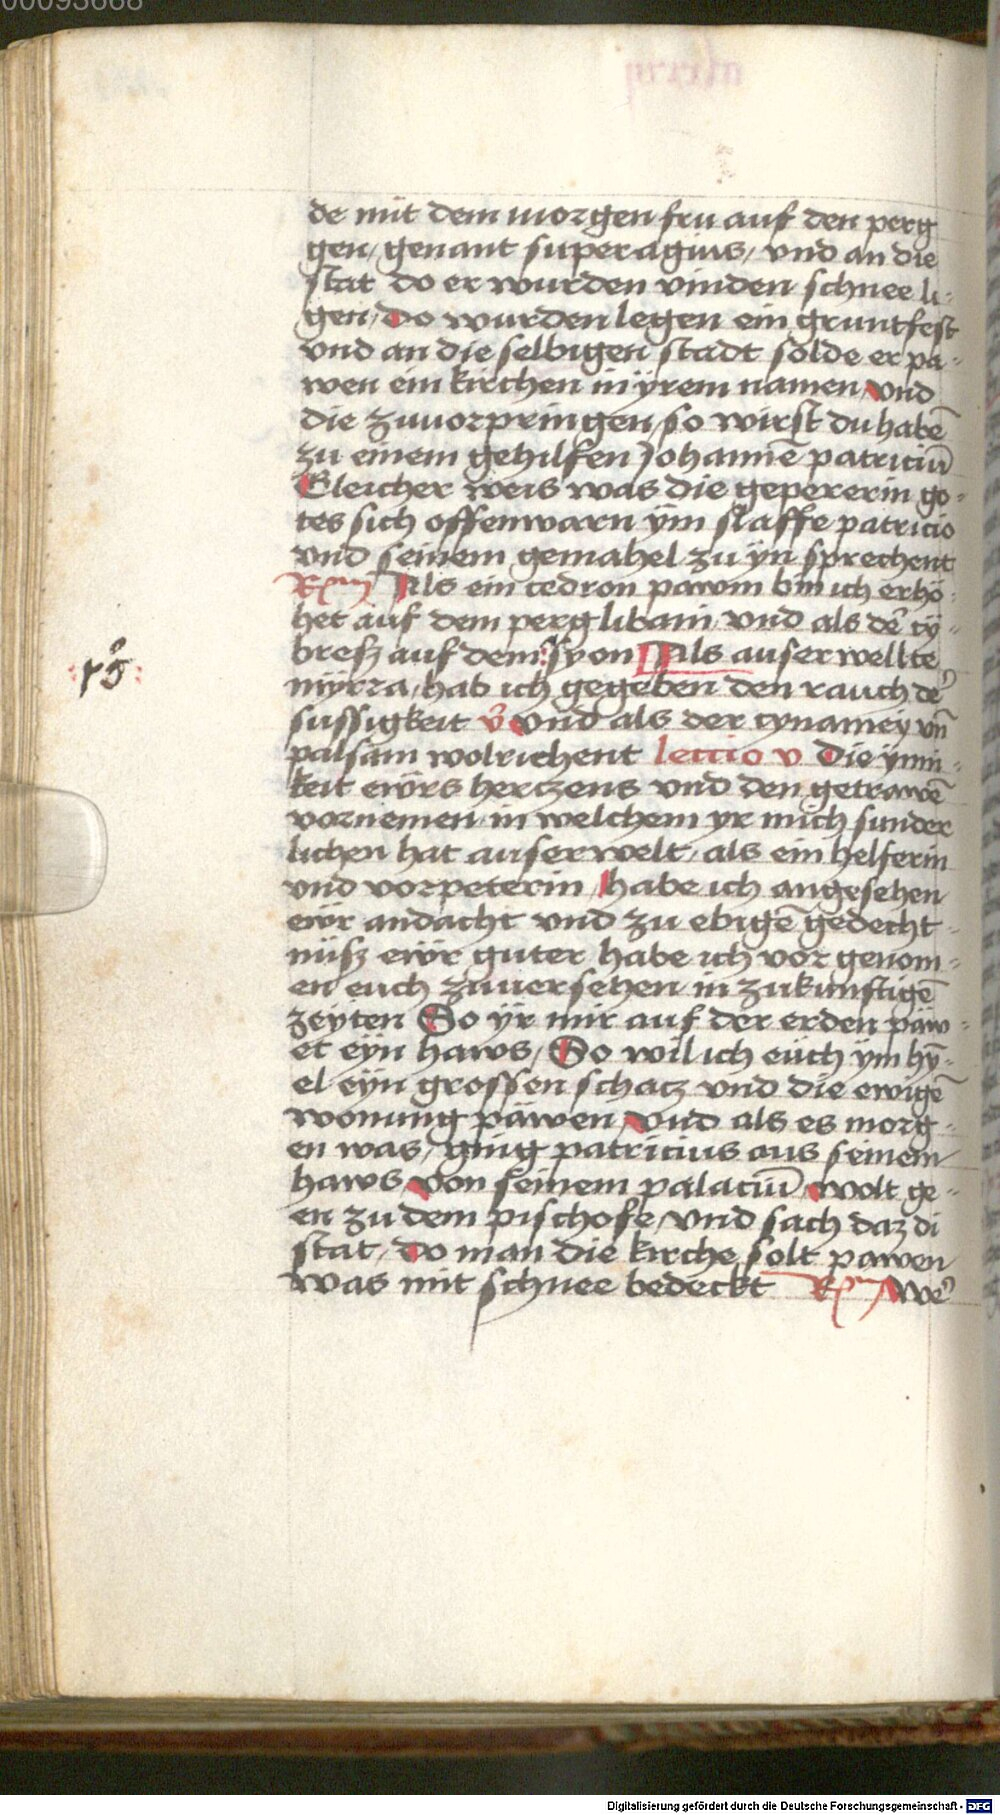 00093668
de mit dem morgen fru auf den perg
gen/ genant superagius/ vnd an die
stat do er wurden vinden schnee li-
gen/ do wurden legen ein gruntfest
vnd an die selbigen stadt solde er pa-
wen ein kirchen in ÿrem namen/ vnd
die zuuorpringen/ so wirst du habē
zu einem gehilfen Johannē patriciū
Gleicher weis was die gepererin go-
tes sich offenwarn ÿm slaffe patricio
vnd seinem gemahel zu ÿn sprechent
Als ein cedron pawm bin ich erhö-
het auf dem perg libani/ vnd als der cÿ-
bresz auf dem syon Als auserwellte
mÿrra/ hab ich gegeben den rauch der
sussigkeit v̉ vnd als der cynamey vn̄
palsam wolrichent lectio v Die ÿnni-
keit ewrs herczens vnd den getrawē
vornemen/ in welchem yr mich sunder
lichen hat auserwelt/ als ein helferin
vnd vorpeterin/ habe ich angesehen
ewr andacht vnd zu ebigē gedecht-
nüsz ewr guter habe ich vor genom-
en euch zuuersehen in zukunftigē
zeyten So ÿr mir auf der erden päw-
et eÿn haws/ So wil ich eüch ÿm hÿ̄-
el eÿn grossen schacz vnd die ewigē
wonung päwen/ vnd als es morg-
en was/ ging patricius aus seinem
haws/ von seinem palaciū/ wolt ge-
en zu dem pischofe/ vnd sach daz di
stat/ do man die kirche solt pawen
was mit schnee bedeckt We᷑
Digitalisierung gefördert durch die Deutsche Forschungsgemeinschaft - DFG